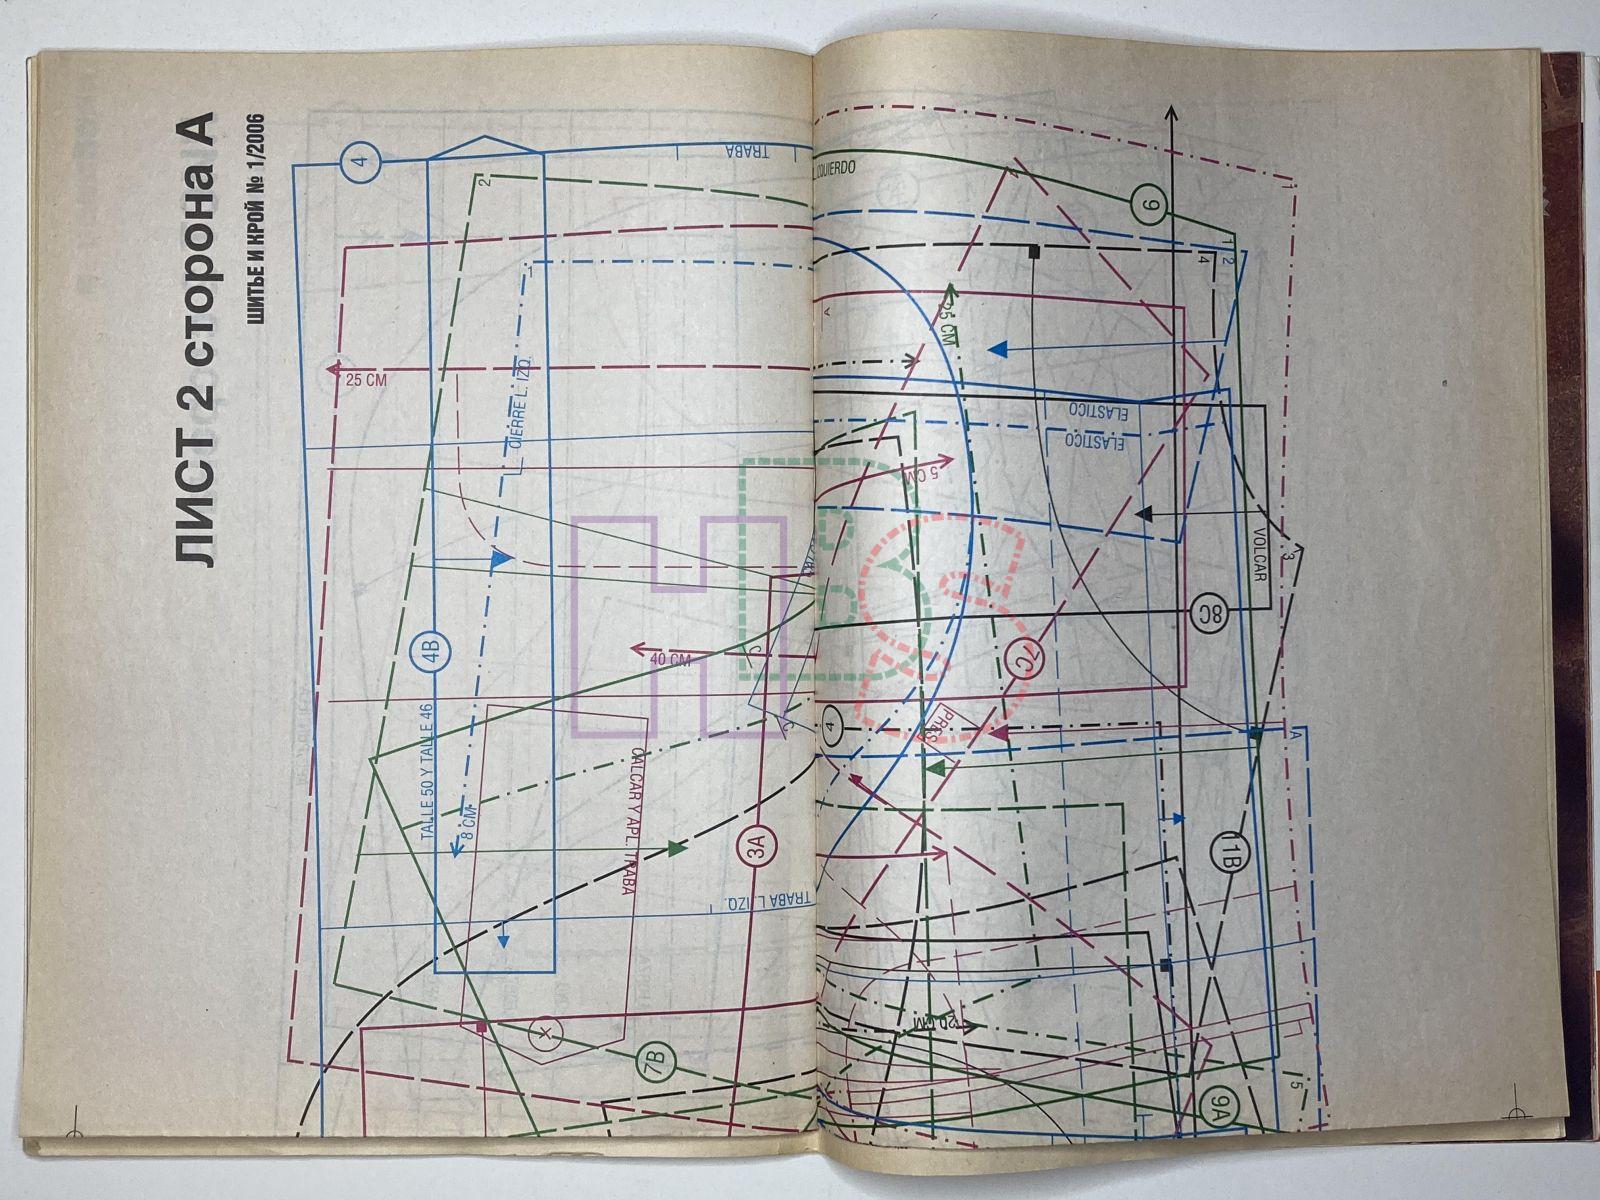 ЛИСТ 2 сторона А
ШИТЬЕ И КРОЙ № 1/2006
4
TRABA
IZQUIERDO
9
1
2
1
2
4
1
A
25 CM
CIERRE L. IZQ.
35 CM
ELASTICO
ELASTICO
5 CM
VOLCAR
3
8C
4B
40 CM
7C
4
PRES
A
TALLE 50 Y TALLE 46
8 CM
CALCAR Y APL. TRABA
3A
11B
TRABA L. IZQ.
20 CM
7B
5
9A